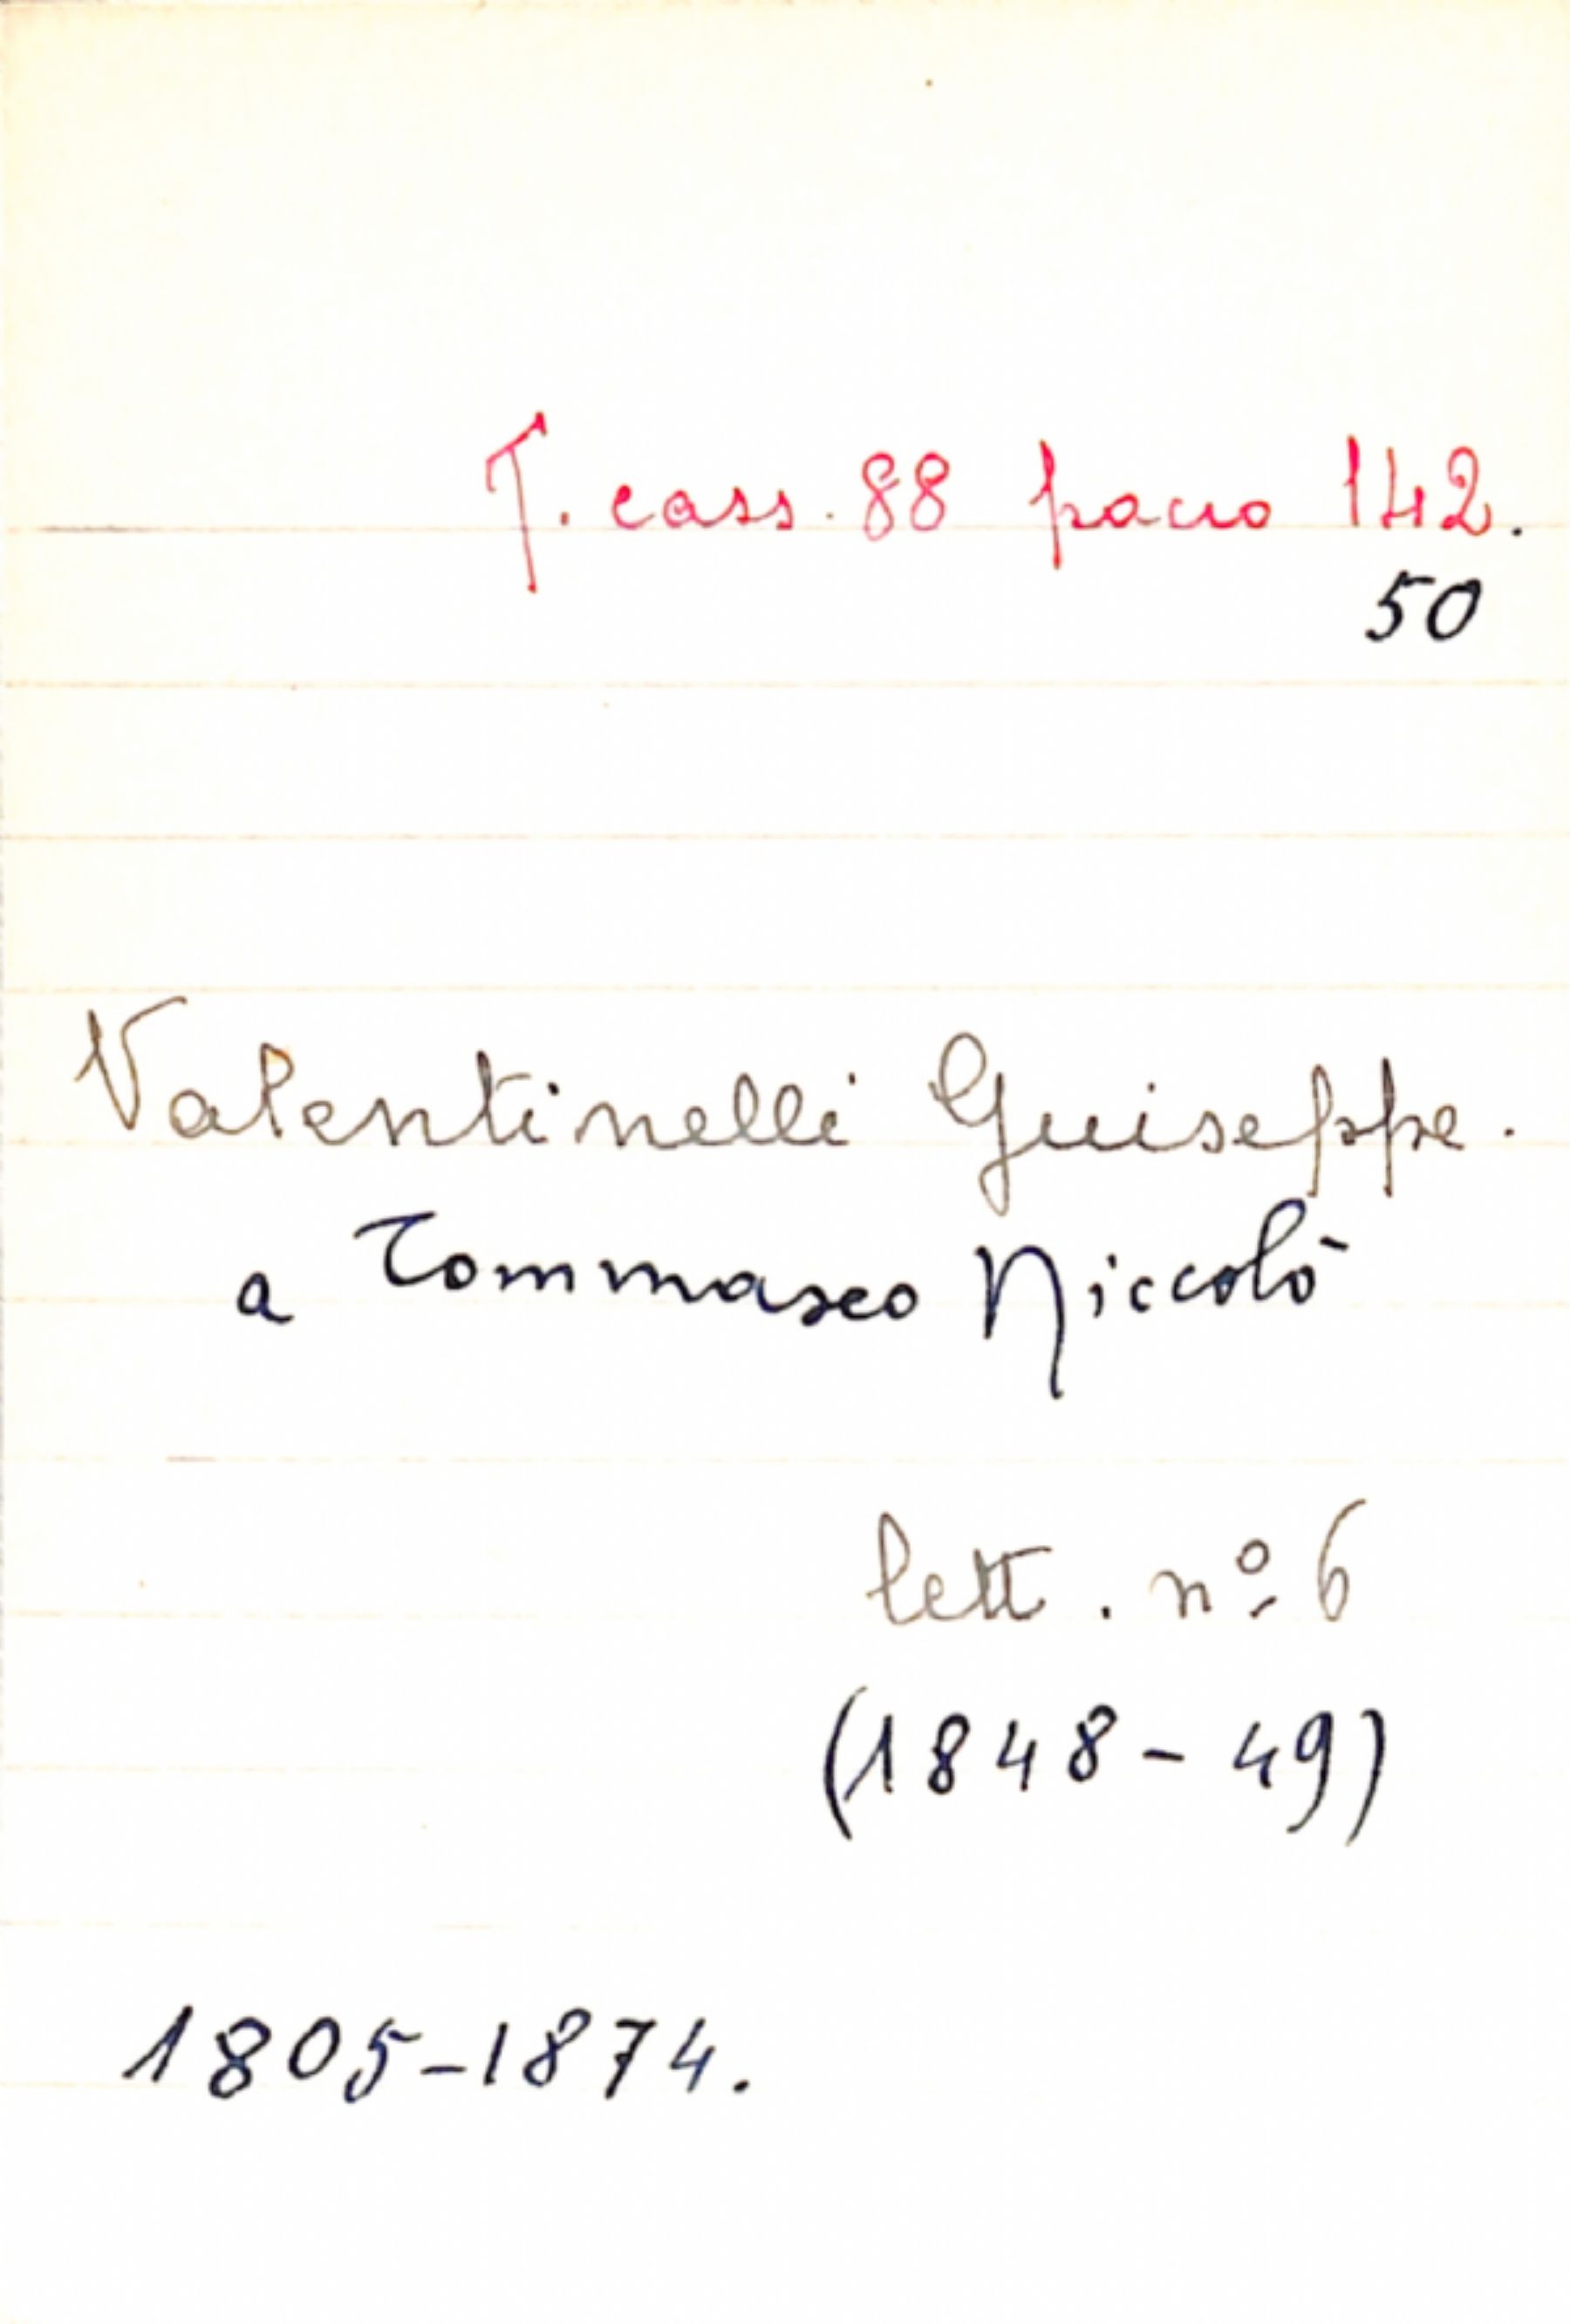 T. cass. 88 pacco 142.
50
Valentinelli Giuseppe.
a Tommaseo Niccolò
lett. nº 6
(1848-49)
1805-1874.